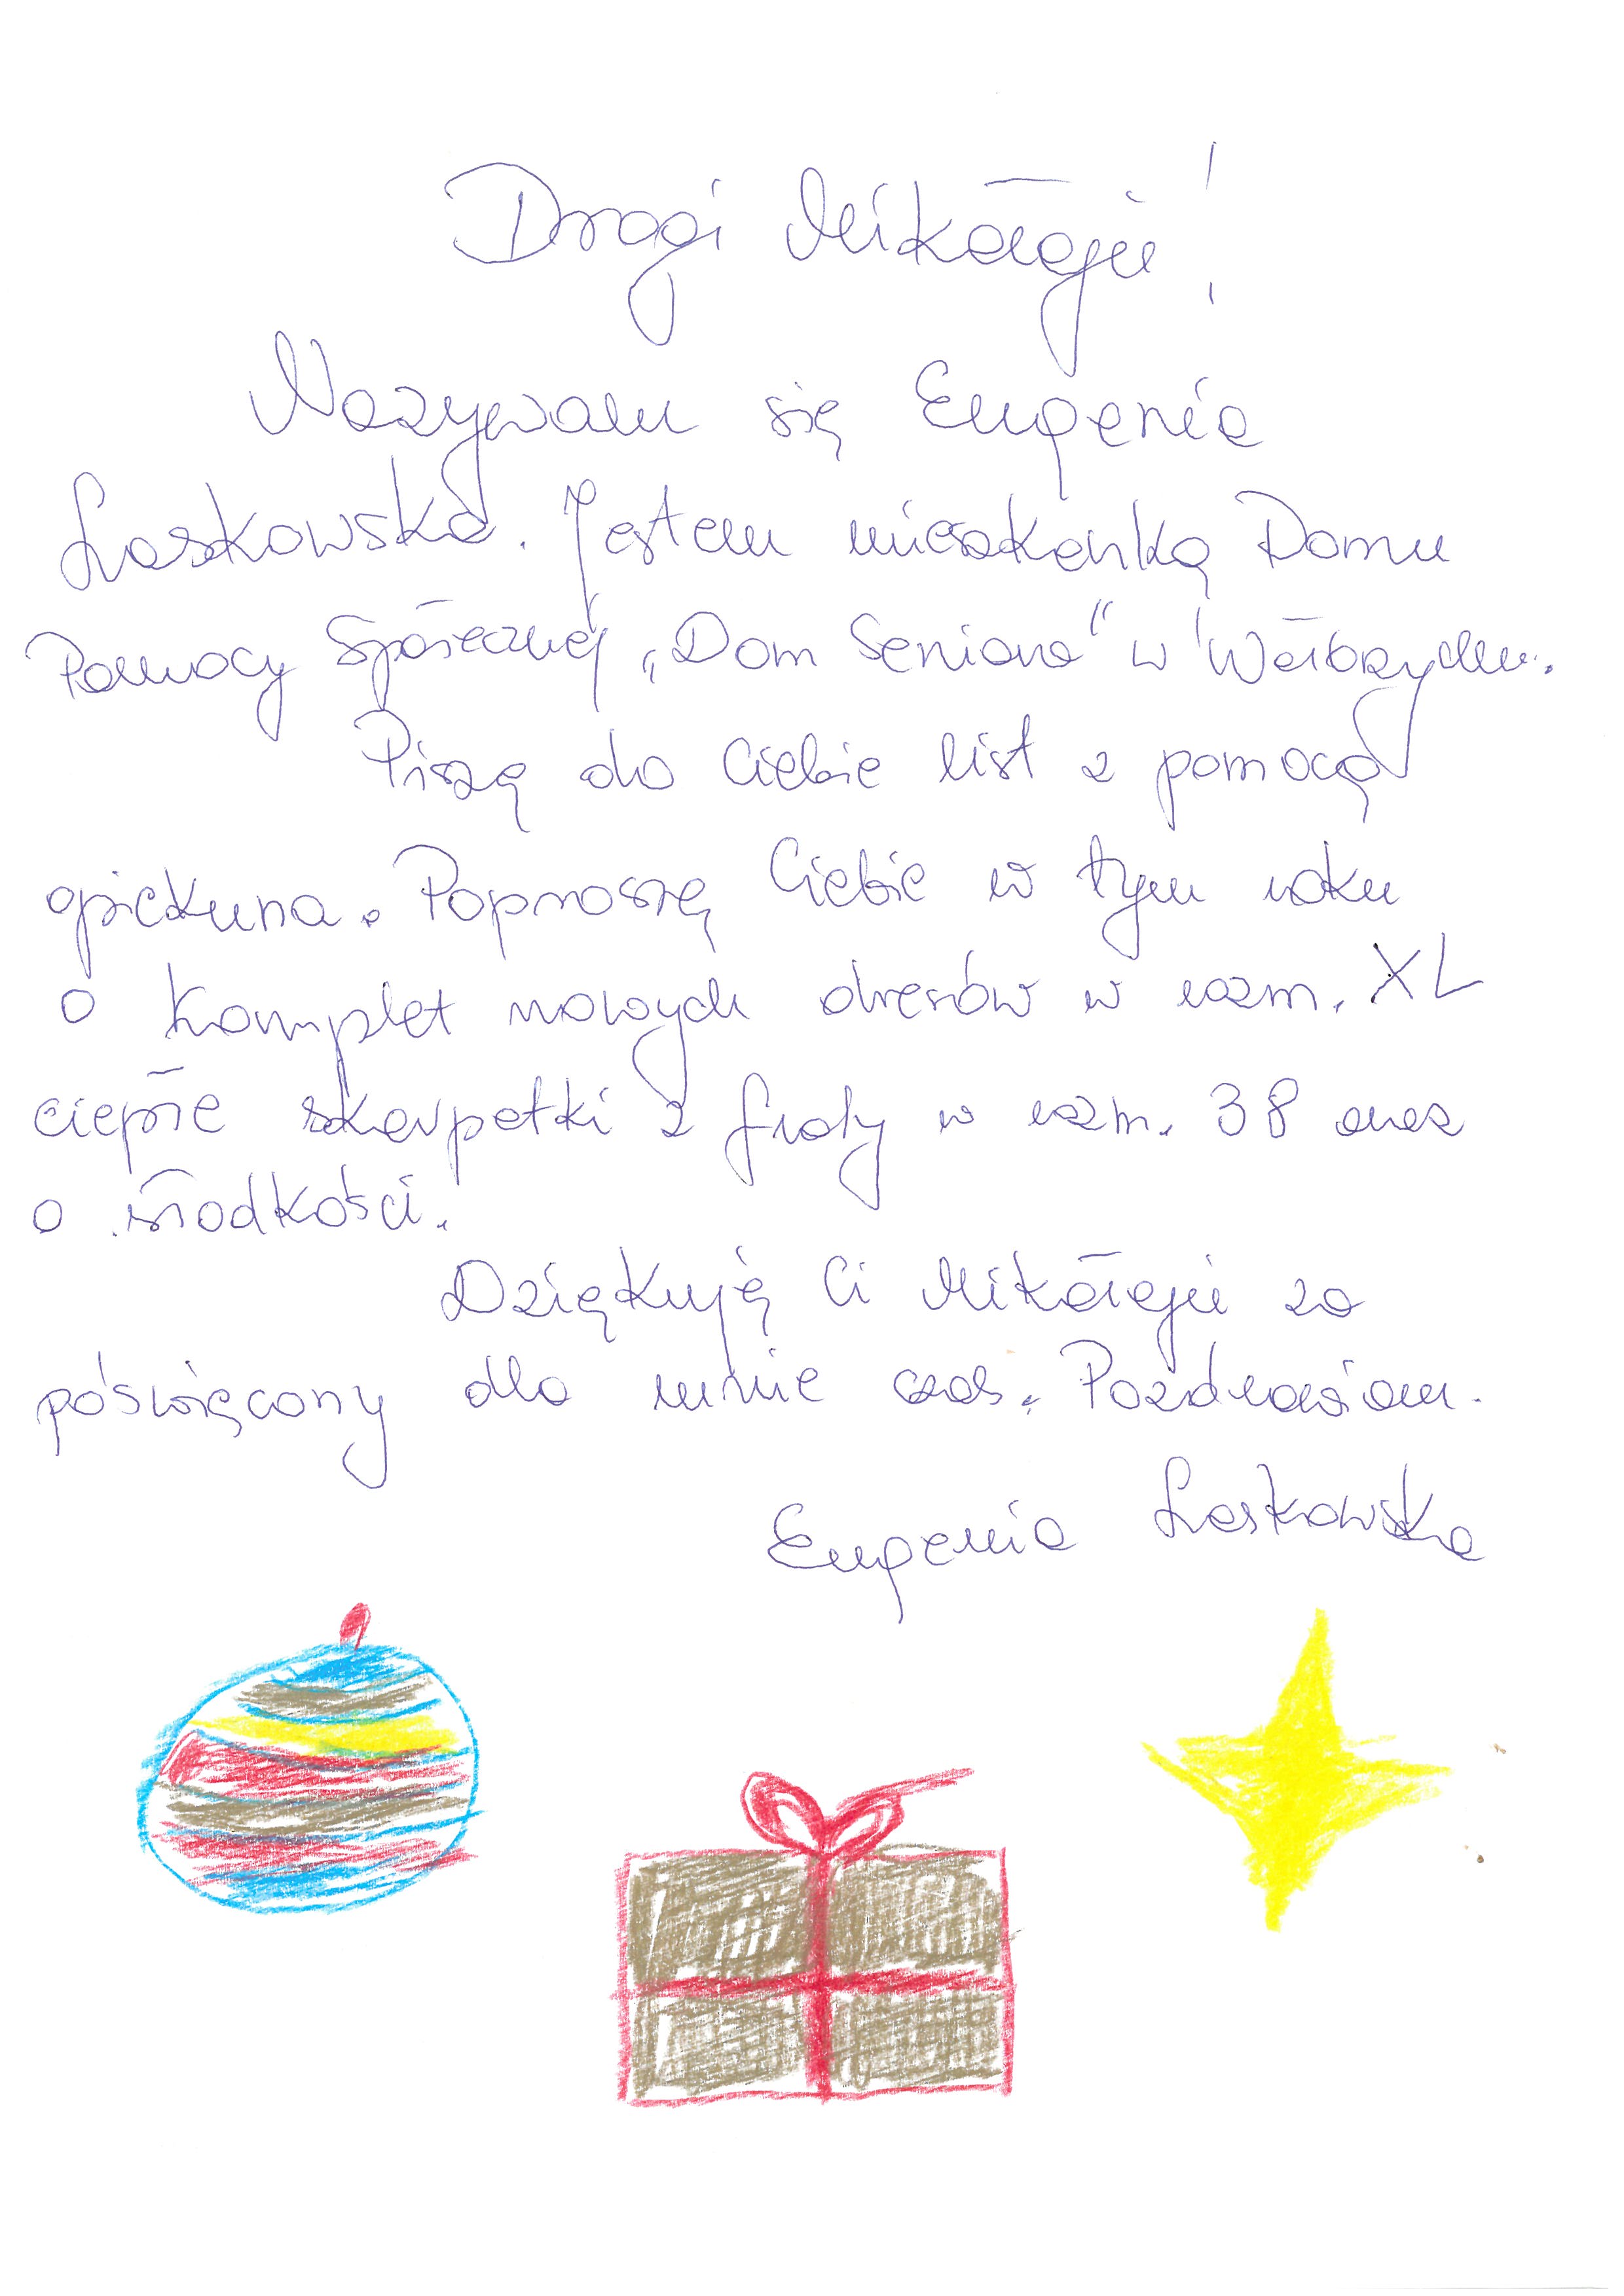 Drogi Mikołaju!
Nazywam się Eugenia
Laskowska. Jestem mieszkanką Domu
Pomocy Społecznej „Dom Seniora" w Wałbrzychu.
Piszę do Ciebie list z pomocą
opiekuna. Poproszę Ciebie w tym roku
o komplet nowych dresów w rozm. XL
ciepłe skarpetki z froty w rozm. 38 oraz
o słodkości.
Dziękuję Ci Mikołaju za
poświęcony dla mnie czas. Pozdrawiam.
Eugenia Laskowska